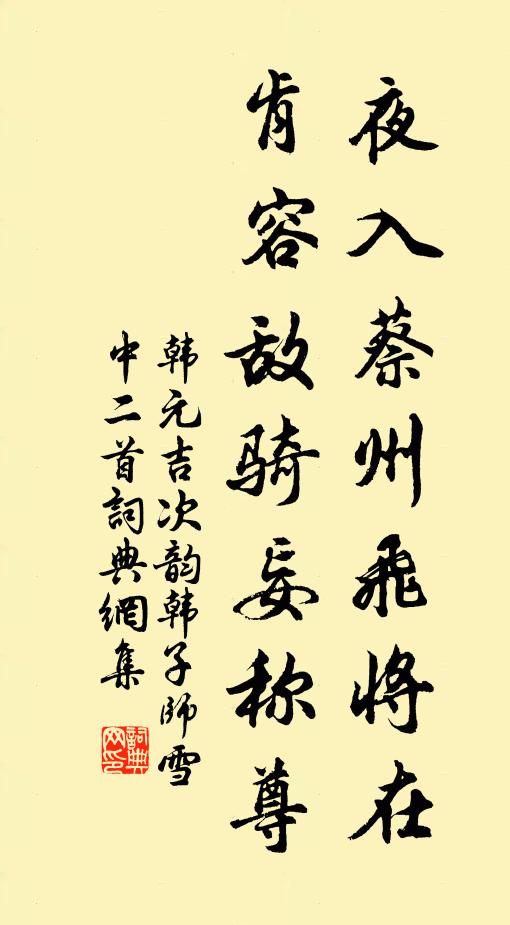 夜入蔡州飛将在
肯容敌骑妄称尊
韩元吉次韵韩子師雪
中二首詞典網集
詞典
网印